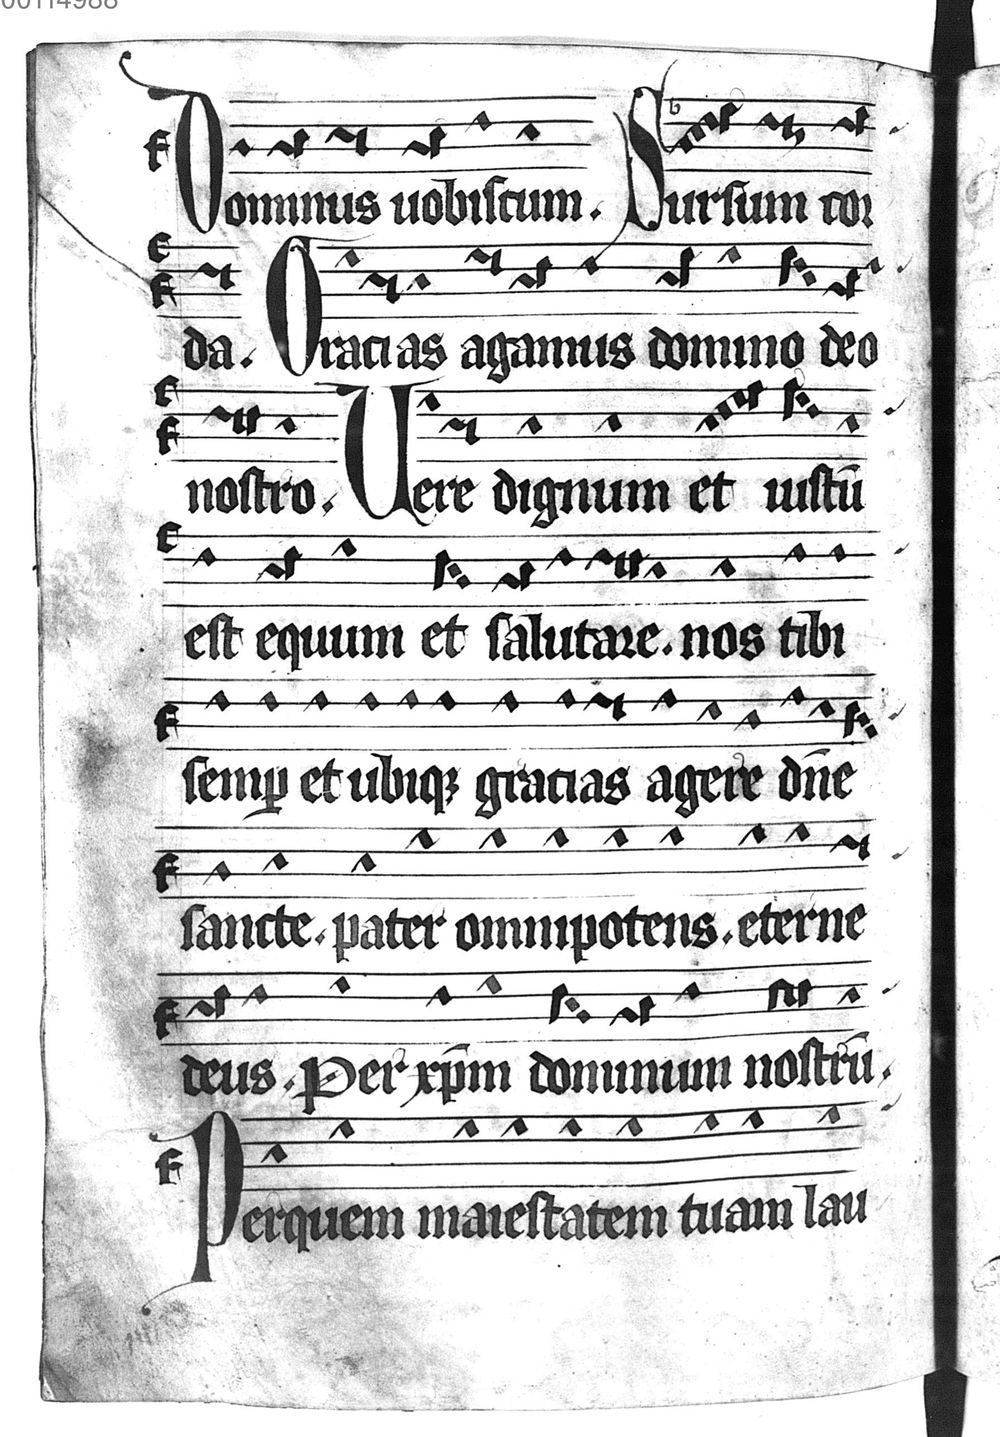 00114988
Dominus uobiscum. Sursum cor
da. Gracias agamus domino deo
nostro. Uere dignum et iustū
est equum et salutare. nos tibi
semꝑ et ubiqꝫ gracias agere dn̄e
sancte. pater omnipotens. eterne
deus. Per xp̄m dominum nostrū.
Per quem maiestatem tuam lau